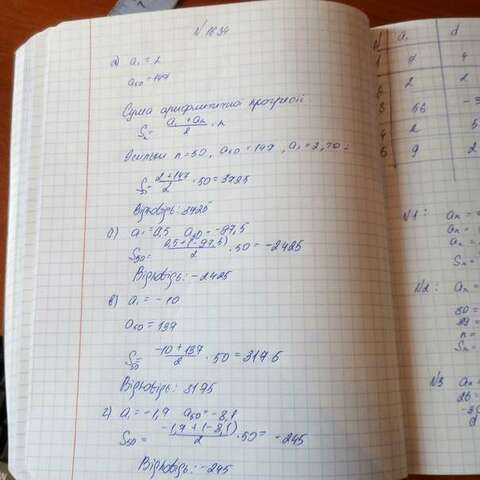 N 1634
а) a₁ = 2
a₅₀ = 147
Сума арифметичної прогресії
Sₙ = (a₁ + aₙ)/2 · n
Оскільки n = 50, a₅₀ = 147, a₁ = 2, то:
S₅₀ = (2 + 147)/2 · 50 = 3725
Відповідь: 3725
б) a₁ = 0,5 a₅₀ = -97,5
S₅₀ = (0,5 + (-97,5))/2 · 50 = -2425
Відповідь: -2425
в) a₁ = -10
a₅₀ = 137
S₅₀ = (-10 + 137)/2 · 50 = 3175
Відповідь: 3175
г) a₁ = -1,7 a₅₀ = -8,1
S₅₀ = (-1,7 + (-8,1))/2 · 50 = -245
Відповідь: -245
N a₁ d
1 7 4
2 2 2
3 56 -3
4 2 5
5 9 2
N1: aₙ =
aₙ =
aₙ =
Sₙ =
N2: aₙ =
30 =
29 =
n =
Sₙ =
N3 aₙ =
26 =
-30
d